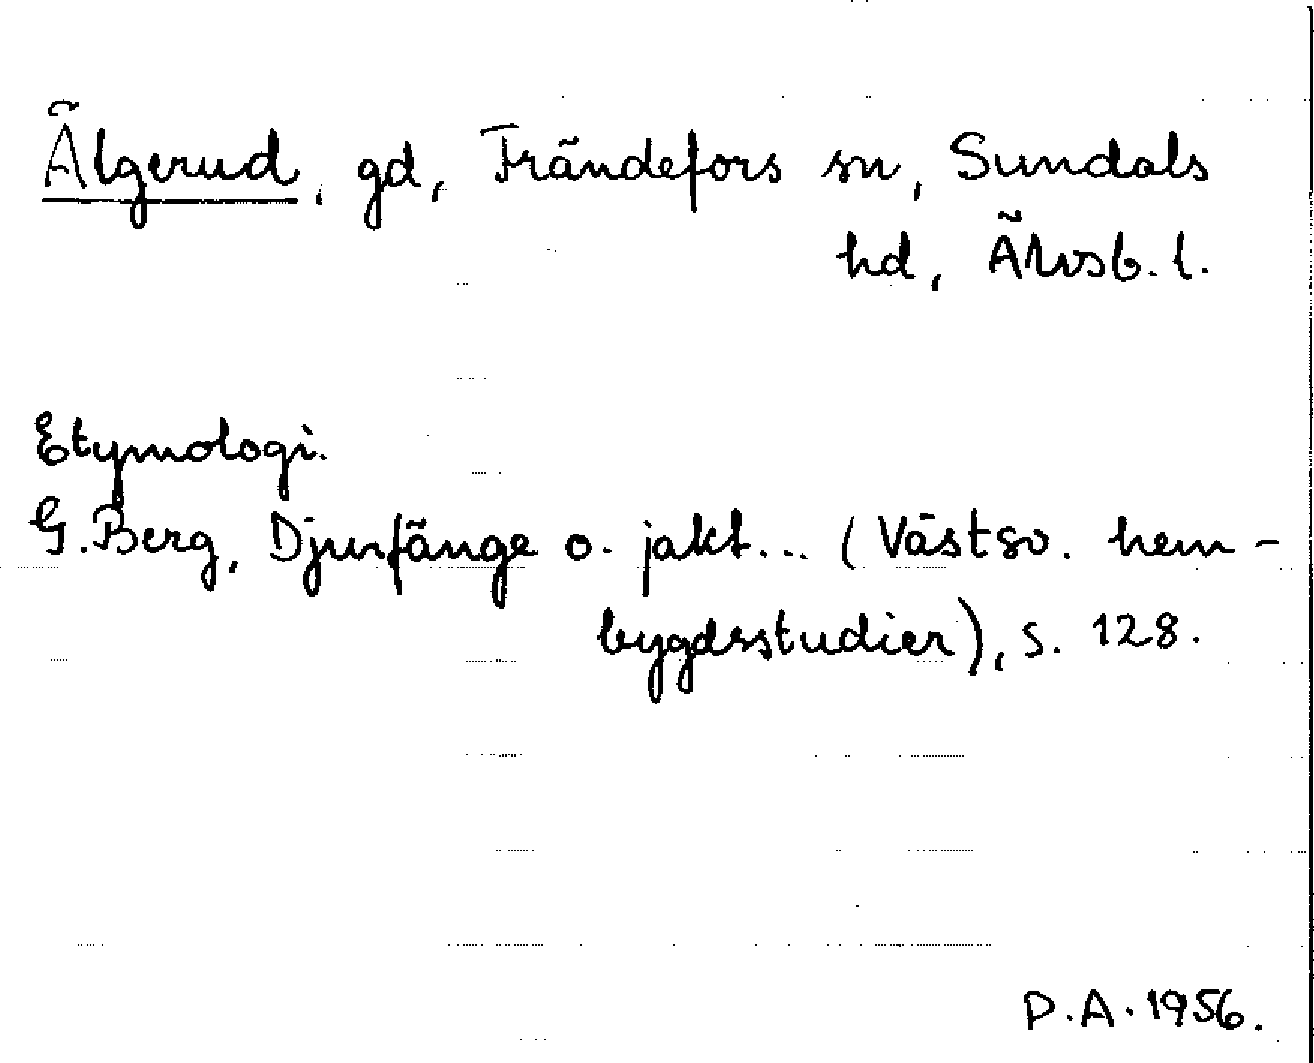 Älgerud, gd, Frändefors sn, Sundals
hd, Älvsb. l.
Etymologi.
G. Berg, Djurfänge o. jakt... (Västsv. hem-
bygdsstudier), s. 128.
P.A. 1956.